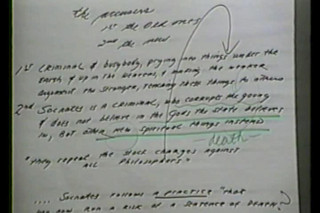 the accusers
1st the old ones
2nd the new
1st Criminal & busybody, prying into things under the
earth & up in the heavens, & making the weaker
argument the stronger, teaching these things to others
2nd Socrates is a criminal, who corrupts the young
& does not believe in the Gods the state believes
in, But other new spiritual things instead
death
"They repeat the stock charges against
all philosophers"
.... Socrates follows a practice "that
you now run a risk of a sentence of death?